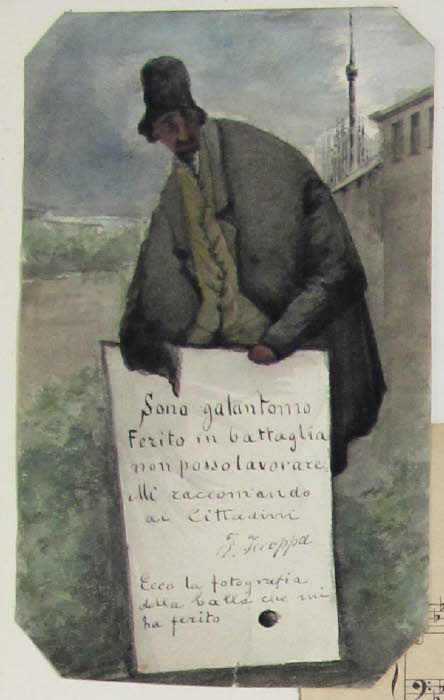 Sono galantomo
Ferito in battaglia
non posso lavorare,
Mi raccomando
ai Cittadini
F. Teroppa
Ecco la fotografia
della balla che mi
ha ferito